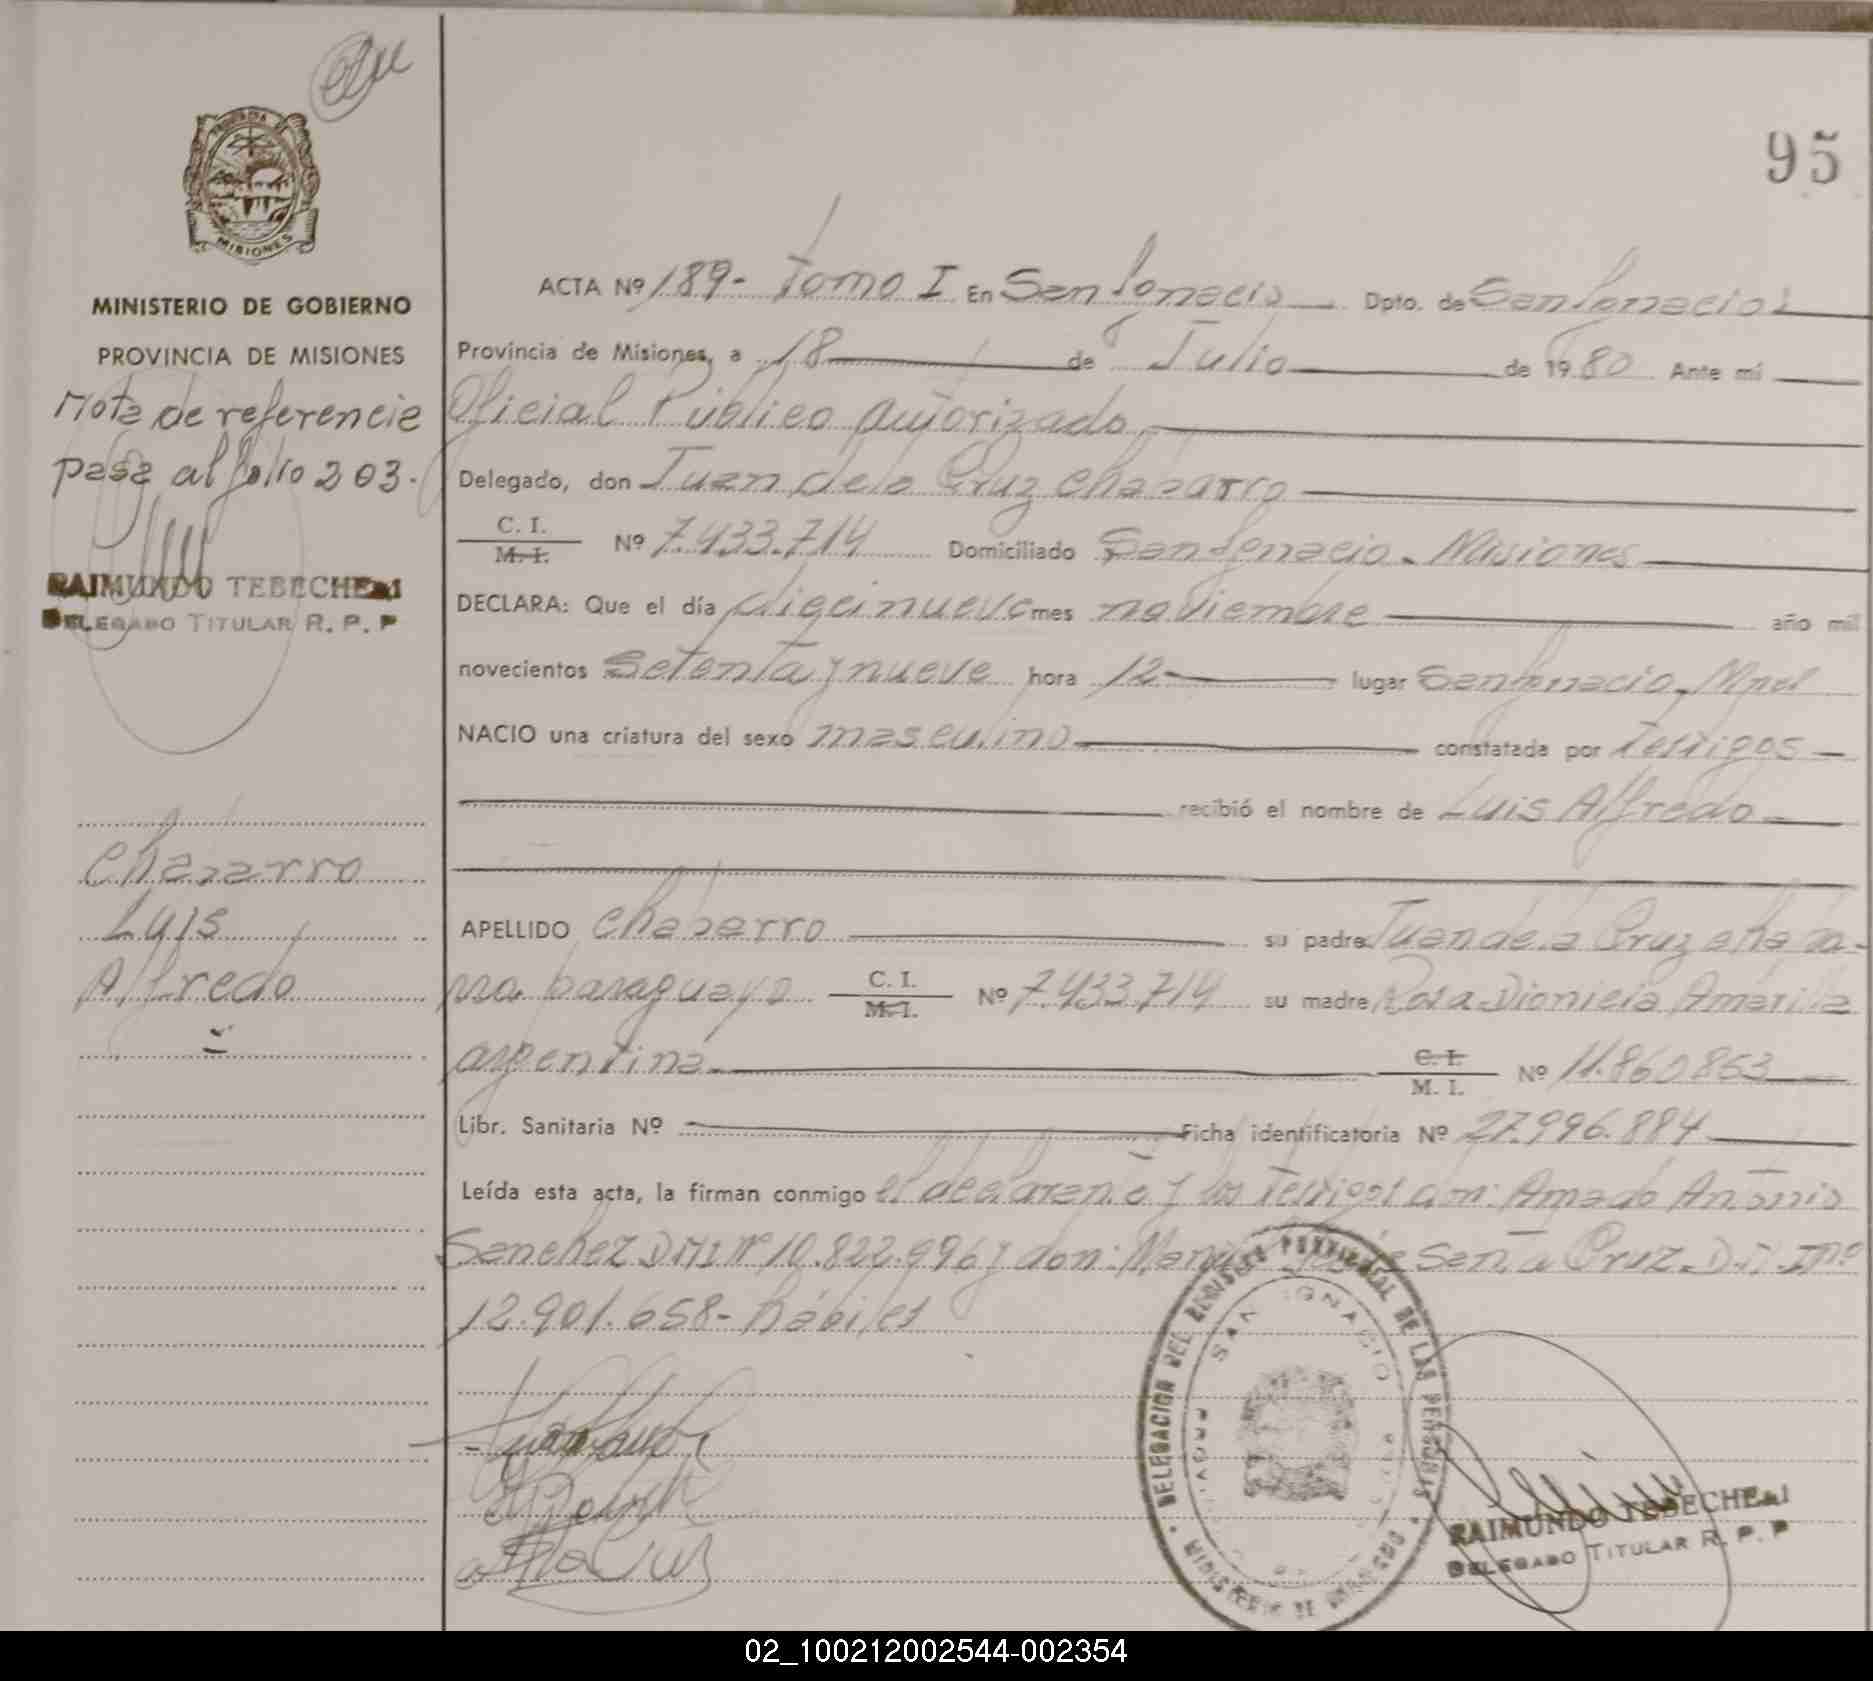 95
PROVINCIA DE
MISIONES
MINISTERIO DE GOBIERNO
PROVINCIA DE MISIONES
Nota de referencia
pasa al folio 203.
RAIMUNDO TEBECHERI
DELEGADO TITULAR R. P. P
Chabarro
Luis
Alfredo
ACTA Nº 189- Tomo I En San Ignacio Dpto. de San Ignacio
Provincia de Misiones, a 18 de Julio de 1980 Ante mí
Oficial Público Autorizado
Delegado, don Juan de la Cruz Chabarro
C. I.
M. I. Nº 7.433.714 Domiciliado San Ignacio - Misiones
DECLARA: Que el día diecinueve mes noviembre año mil
novecientos Setenta y nueve hora 12 lugar San Ignacio, Mnes
NACIO una criatura del sexo masculino constatada por testigos
recibió el nombre de Luis Alfredo
APELLIDO Chabarro su padre Juan de la Cruz Chaba-
rro paraguayo C. I.
M. I. Nº 7.433.714 su madre Rosa Dionicia Amarilla
argentina C. I.
M. I. Nº 11.860853
Libr. Sanitaria Nº Ficha identificatoria Nº 27.996.884
Leída esta acta, la firman conmigo el declarante y los testigos don: Amado Antonio
Sanchez DMI Nº 10.822.996 y don: Santa Cruz D.M.I Nº
12.901.658- hábiles
DELEGACION DEL REGISTRO PROVINCIAL DE LAS PERSONAS
SAN IGNACIO
MINISTERIO DE GOBIERNO
RAIMUNDO TEBECHERI
DELEGADO TITULAR R. P. P
02_100212002544-002354